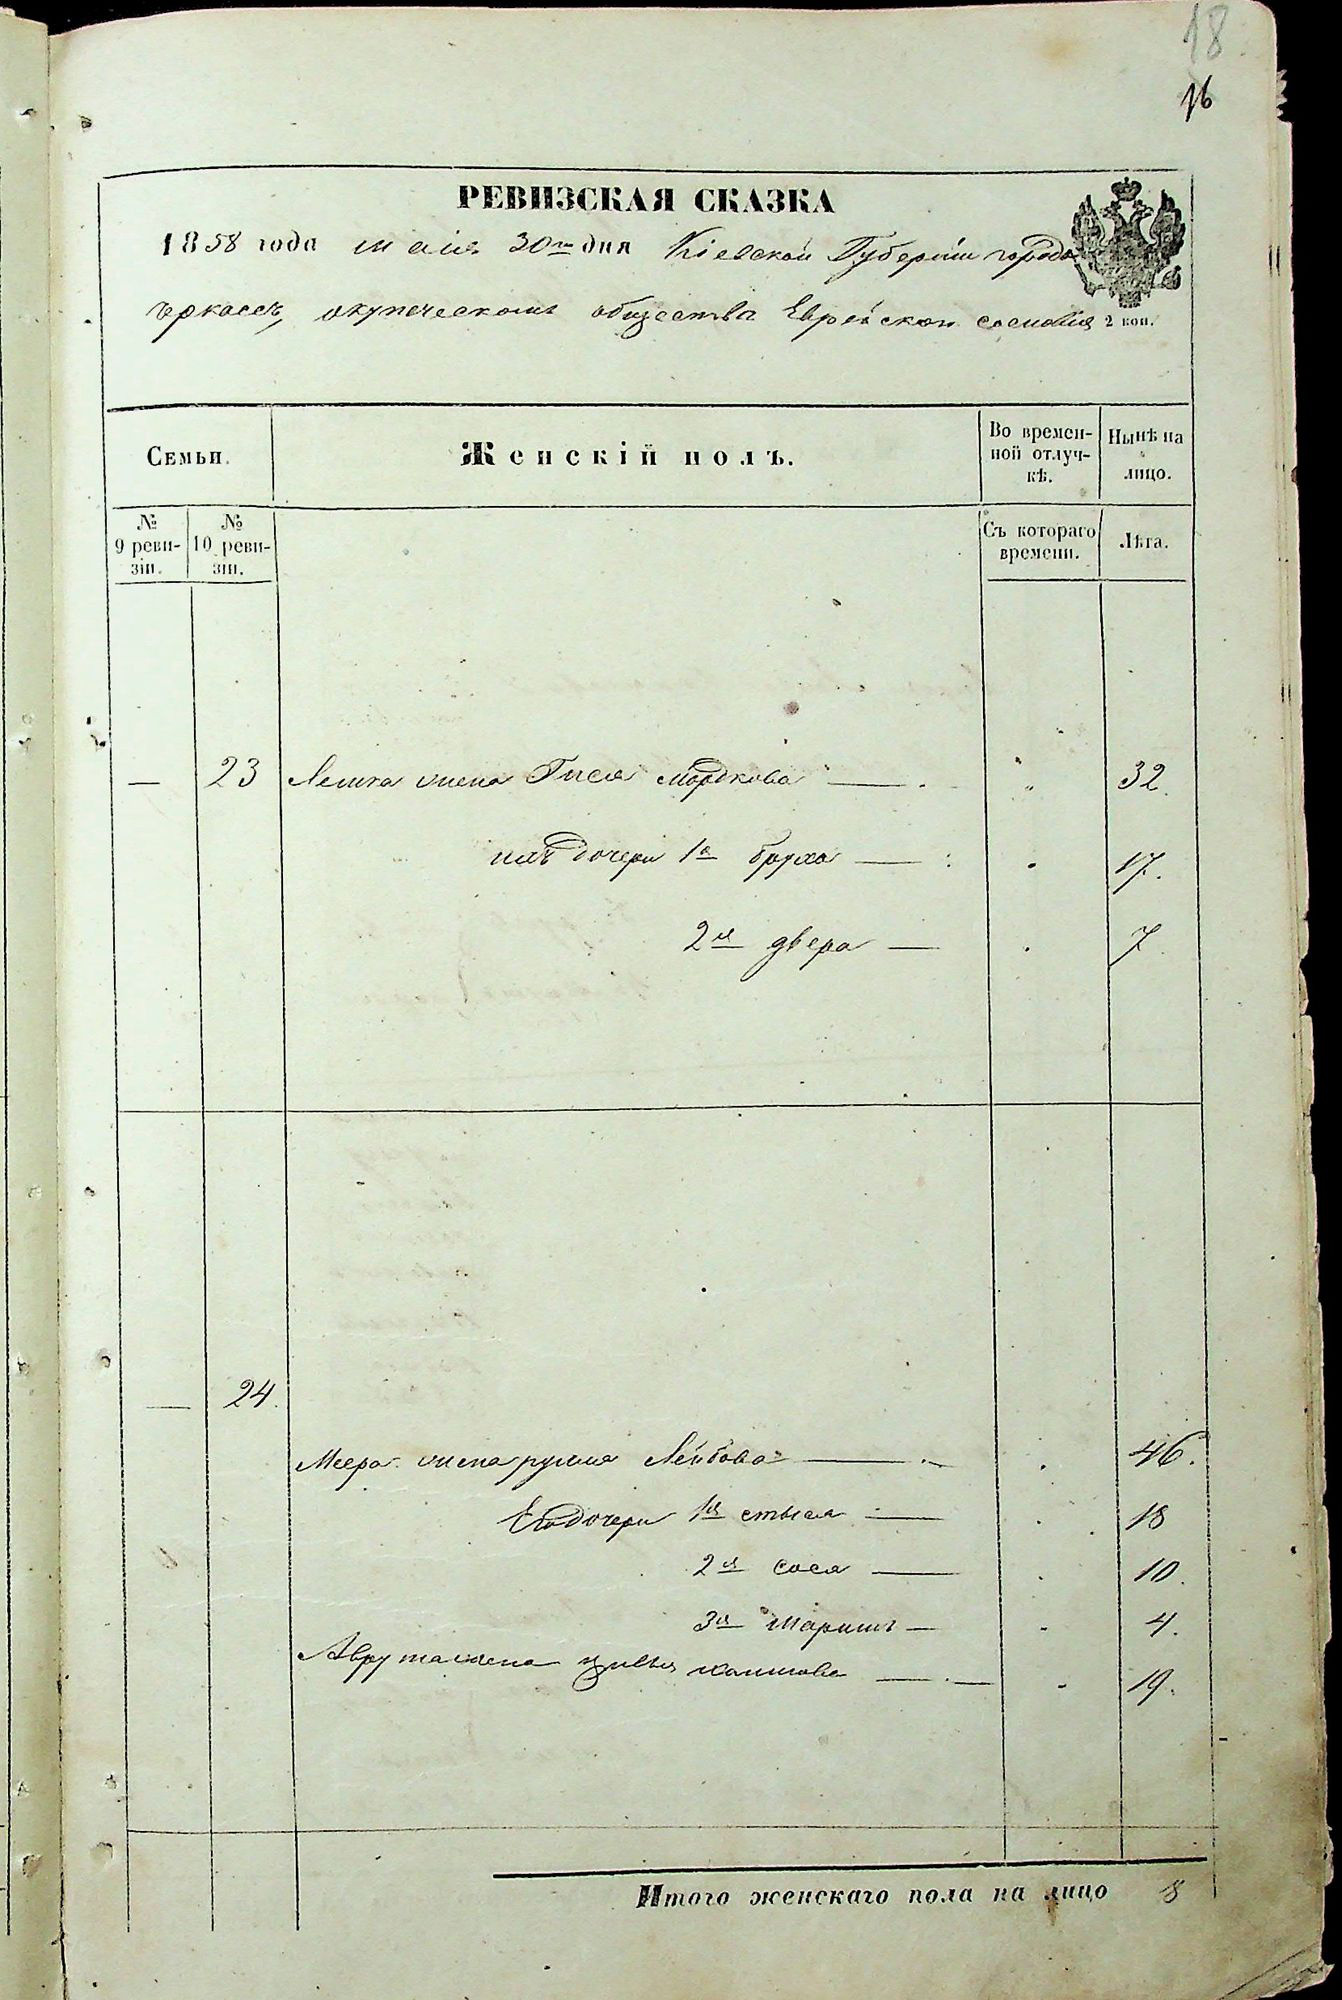 18
16
РЕВИЗСКАЯ СКАЗКА
1858 года маія 30го дня Кіевской Губерніи города
Черкасъ, окупеческомъ общества Еврейскои сословія 2 коп.
Семьи.
Женскій полъ.
Во времен-
ной отлуч-
кѣ.
Нынѣ на
лицо.
№
9 реви-
зіи.
№
10 реви-
зіи.
Съ котораго
времени.
Лѣта.
— 23 Лемка жена Гися Мордкова — 32.
ихъ дочери 1я Бруха — 17.
2я двера — 7.
— 24.
Меера жена рухля Лейбова — 46.
Его дочери 1я стыся — 18
2я сося — 10.
3я Маримъ — 4.
Аврума жена цивья — 19.
Итого женскаго пола на лицо 8